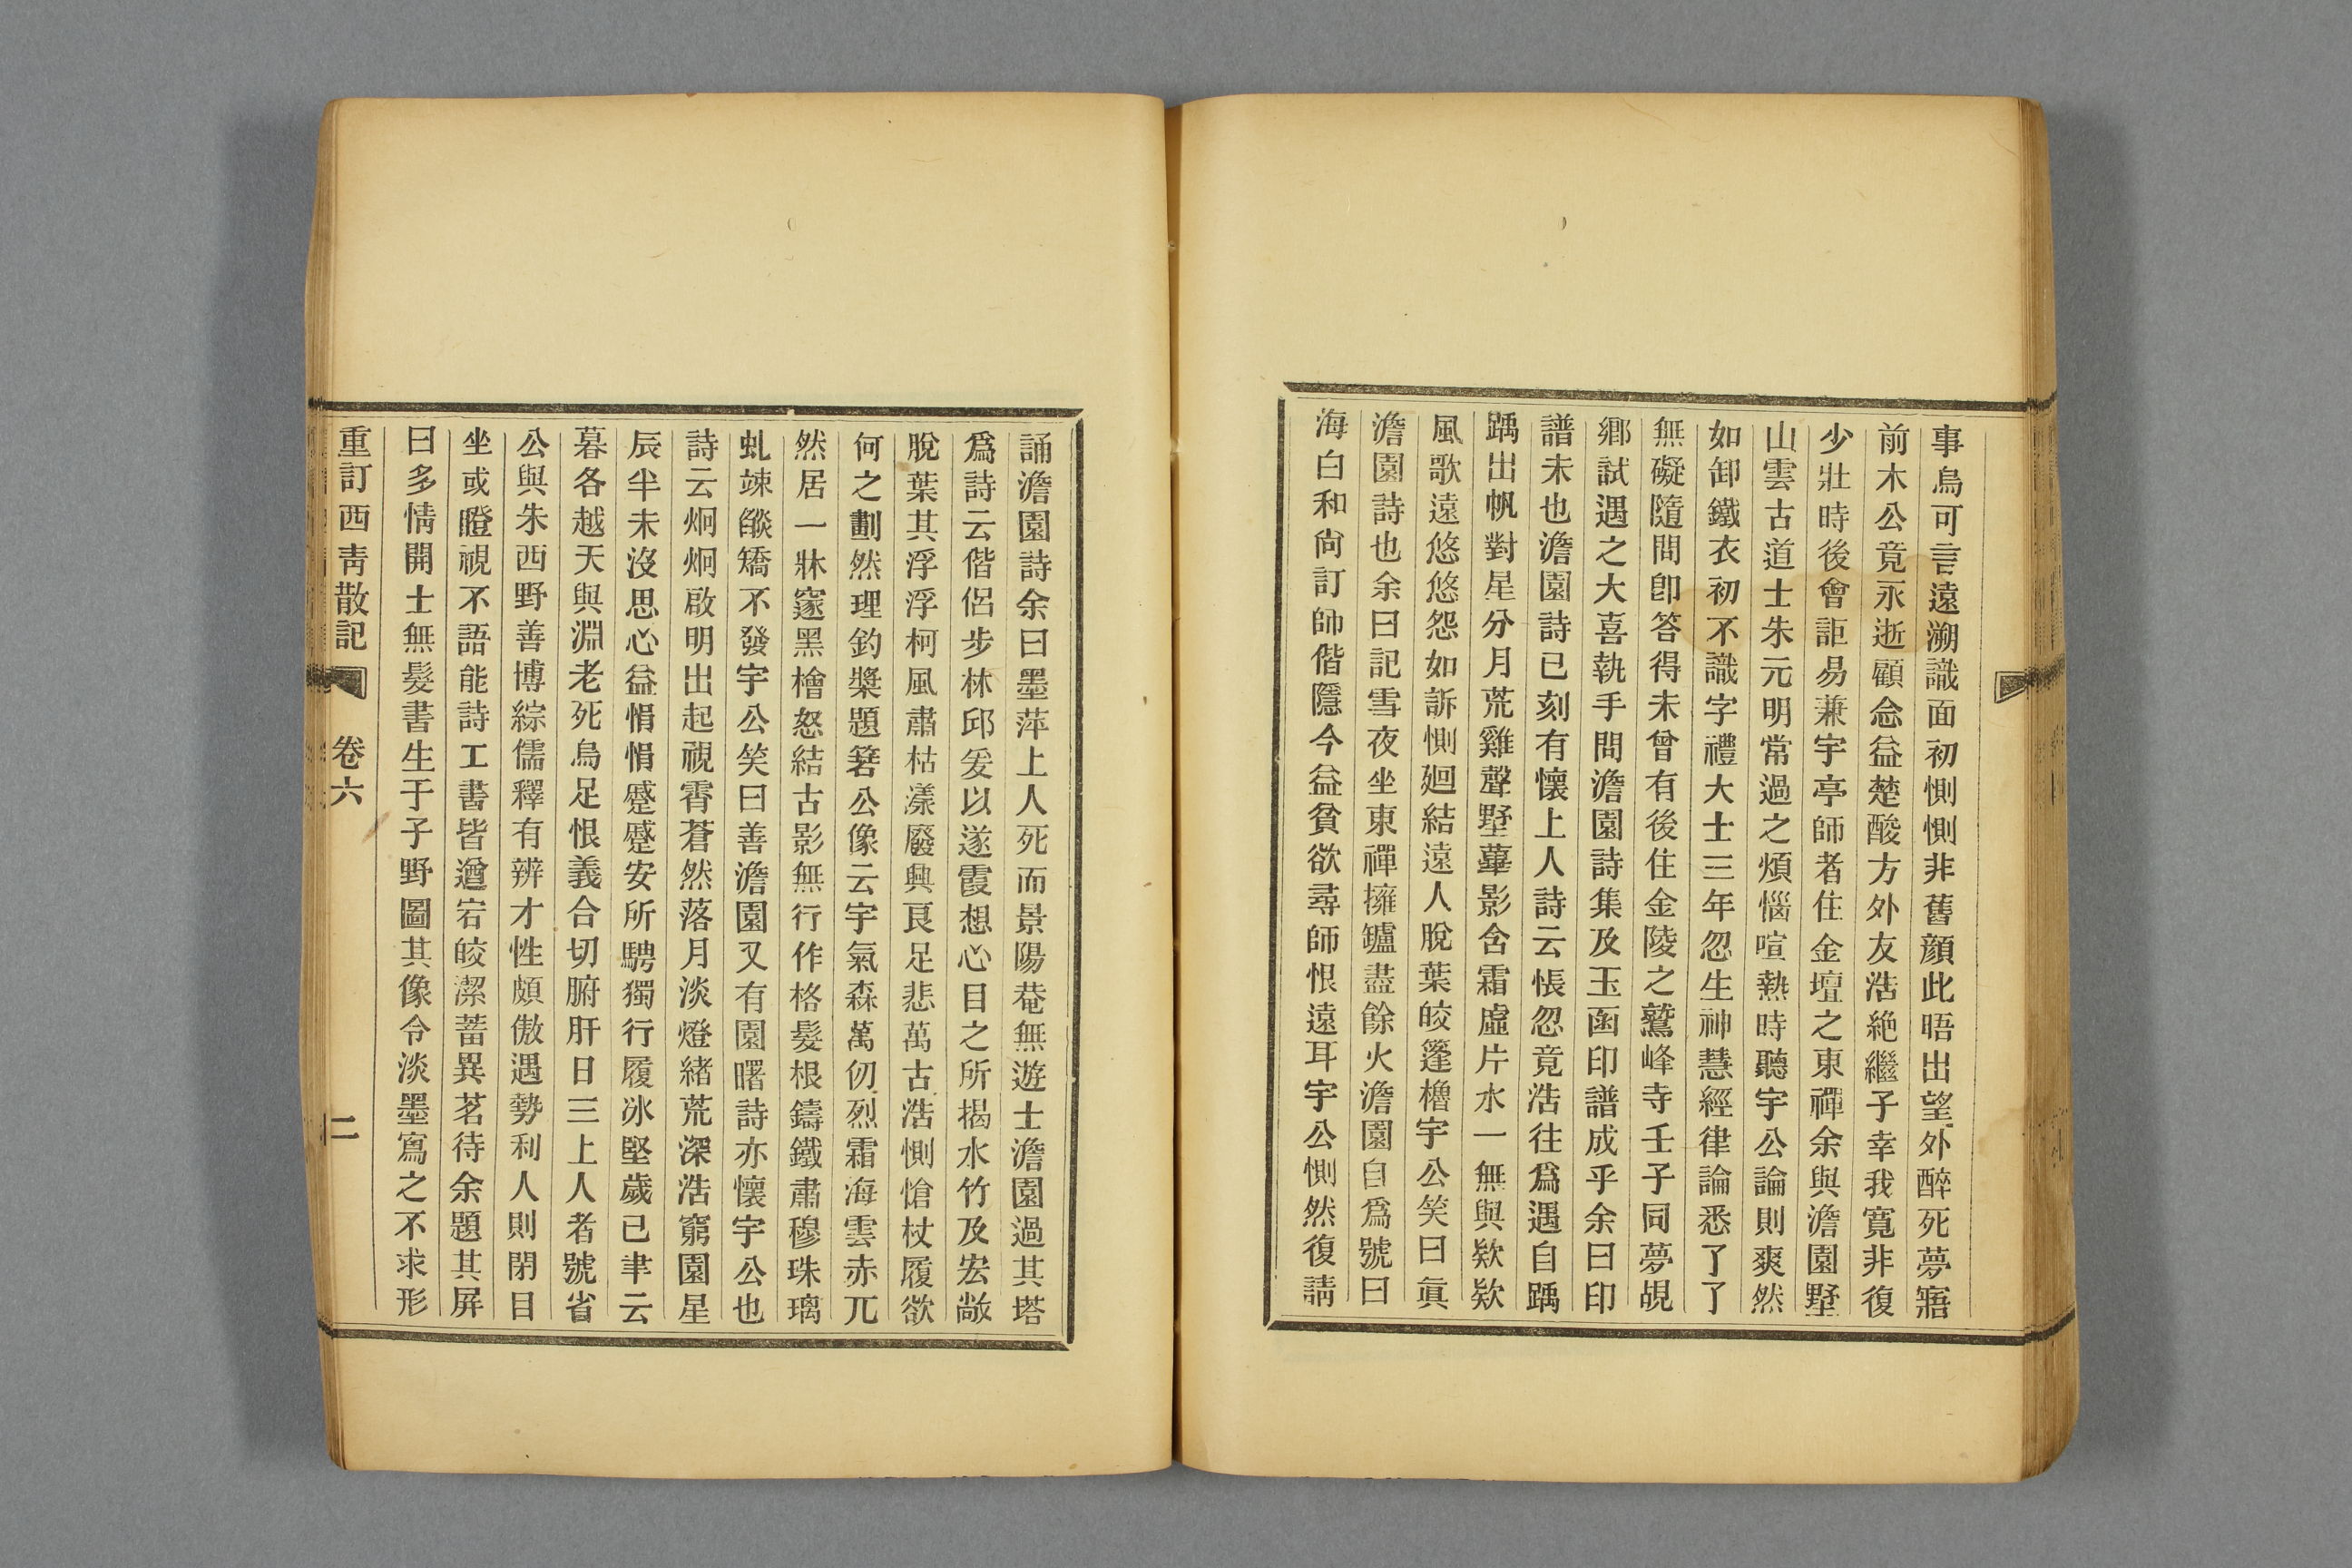 事烏可言遠溯識面初惻惻非舊顏此晤出望外醉死夢寤
前木公竟永逝顧念益楚酸方外友浩絶繼子幸我寬非復
少壯時後會詎易兼宇亭師者住金壇之東禪余與澹園墅
山雲古道士朱元明常過之煩惱喧熱時聽宇公論則爽然
如卸鐵衣初不識字禮大士三年忽生神慧經律論悉了了
無礙隨問卽答得未曾有後住金陵之鷲峰寺壬子同夢覘
鄉試遇之大喜執手問澹園詩集及玉函印譜成乎余曰印
譜未也澹園詩已刻有懷上人詩云悵忽竟浩往爲遇自踽
踽出帆對星分月荒雞聲墅蓽影含霜虛片水一無與欵欵
風歌遠悠悠怨如訴惻廻結遠人脫葉皎篷櫓宇公笑曰眞
澹園詩也余曰記雪夜坐東禪擁鑪盡餘火澹園自爲號曰
海白和尙訂師偕隱今益貧欲尋師恨遠耳宇公惻然復請
誦澹園詩余曰墨萍上人死而景陽菴無遊士澹園過其塔
爲詩云偕侶步林邱爰以遂霞想心目之所揭水竹及宏敞
脫葉其浮浮柯風肅枯漾廢興艮足悲萬古浩惻愴杖履欲
何之劃然理釣槳題碧公像云宇氣森萬仞烈霜海雲赤兀
然居一牀窪黑檜怒結古影無行作格髮根鑄鐵肅穆珠璃
虬竦皦矯不發宇公笑曰善澹園又有園曙詩亦懷宇公也
詩云炯炯啟明出起視霄蒼然落月淡燈緒荒深浩窮園星
辰半未沒思心益悁悁蹙蹙安所騁獨行履冰堅歲已聿云
暮各越天與淵老死烏足恨義合切腑肝日三上人者號省
公與朱西野善博綜儒釋有辨才性頗傲遇勢利人則閉目
坐或瞪視不語能詩工書皆遒宕皎潔蓄異茗待余題其屏
曰多情開士無髮書生于子野圖其像令淡墨寫之不求形
重訂西靑散記 卷六 二